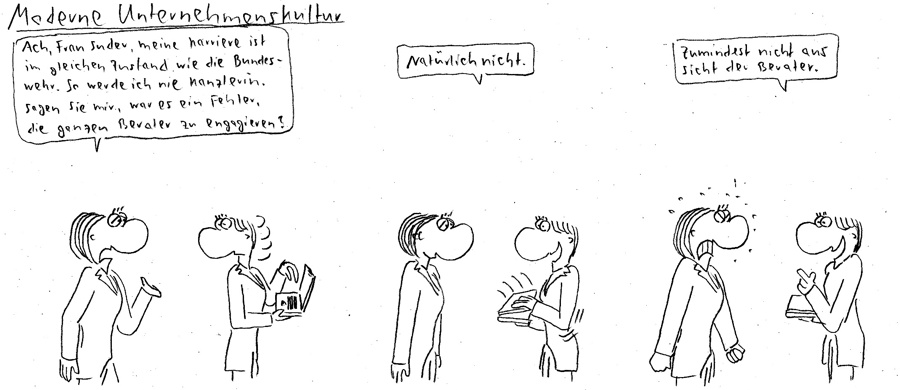 Moderne Unternehmenskultur
Ach, Frau Suder, meine Karriere ist
im gleichen Zustand, wie die Bundes-
wehr. So werde ich nie Kanzlerin.
Sagen Sie mir, war es ein Fehler,
die ganzen Berater zu engagieren?
Natürlich nicht.
Zumindest nicht aus
Sicht der Berater.